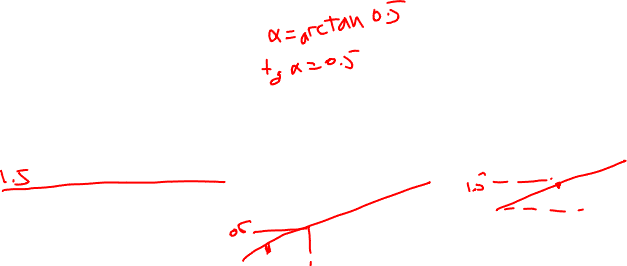 α=arctan 0.5
tg α=0.5
1.5
0.5
1.5